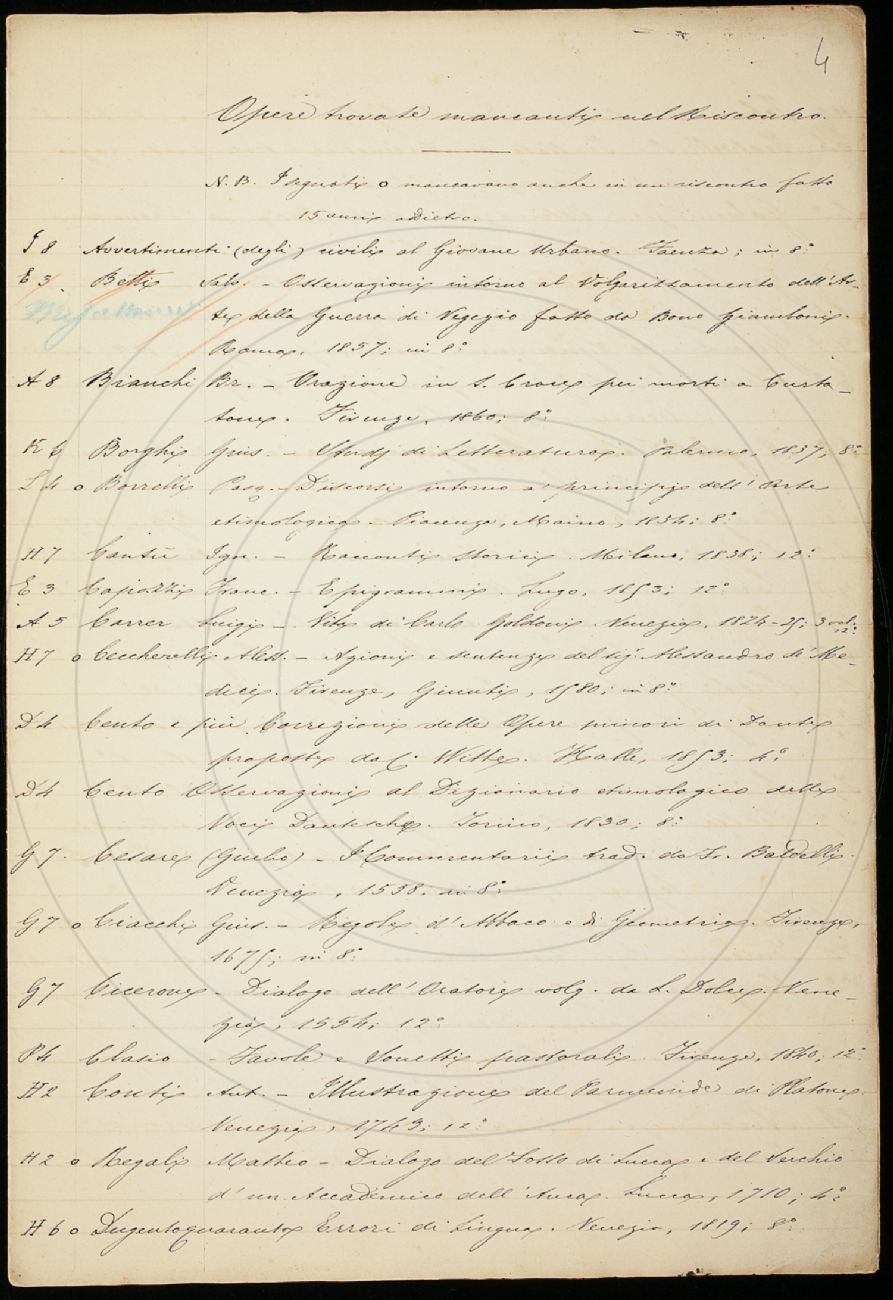 4
Opere trovate mancanti nel Riscontro.
N. B. I segnati o mancavano anche in un riscontro fatto
15 anni addietro.
I 8 Avvertimenti (degli) civili al Giovane Urbano. Faenza; in 8°
E 3. Betti Salv. - Osservazioni intorno al Volgarizzamento dell'Ar-
te della Guerra di Vegezio fatto da Bono Giamboni.
Roma, 1857; in 8°
A 8 Bianchi Br. - Orazione in S. Croce pei morti a Curta-
tone. Firenze, 1860; 8°
K 6 Borghi Gius. - Studj di Letteratura. Palermo, 1837; 8°
L 4 o Borrelli Pasq. - Discorsi intorno a' principj dell'Arte
etimologica. Piacenza, Maino, 1834; 8°
H 7 Cantù Ign. - Racconti storici. Milano, 1838; 12°
E 3 Capozzi Franc. - Epigrammi. Lugo, 1853; 12°
A 5 Carrer Luigi - Vita di Carlo Goldoni. Venezia, 1824-25; 3 vol. 12°
H 7 o Ceccherelli Aless. - Azioni e sentenze del sig. Alessandro de' Me-
dici. Firenze, Giunti, 1580; in 8°
D 4 Cento e più Correzioni delle Opere minori di Dante
proposte da C. Witte. Halle, 1853; 4°
D 4 Cento Osservazioni al Dizionario etimologico delle
Voci Dantesche. Torino, 1830; 8°
G 7. Cesare (Giulio) - I Commentarii trad. da Fr. Baldelli.
Venezia, 1558. in 8°
G 7 o Ciacchi Gius. - Regole d'Abbaco e di Geometria. Firenze,
1675; in 8°
G 7 Cicerone - Dialogo dell'Oratore volg. da L. Dolce. Vene-
zia, 1554; 12°
P 4 Clasio - Favole e Sonetti pastorali. Firenze, 1840; 12°
H 2 Conti Ant. - Illustrazione del Parmenide di Platone.
Venezia, 1743; 12°
H 2 o Regali Matteo - Dialogo del Fosso di Lucca e del Serchio
d'un Accademico dell'Anca. Lucca, 1710; 4°
H 6 o Dugentoquaranta Errori di Lingua. Venezia, 1819; 8°